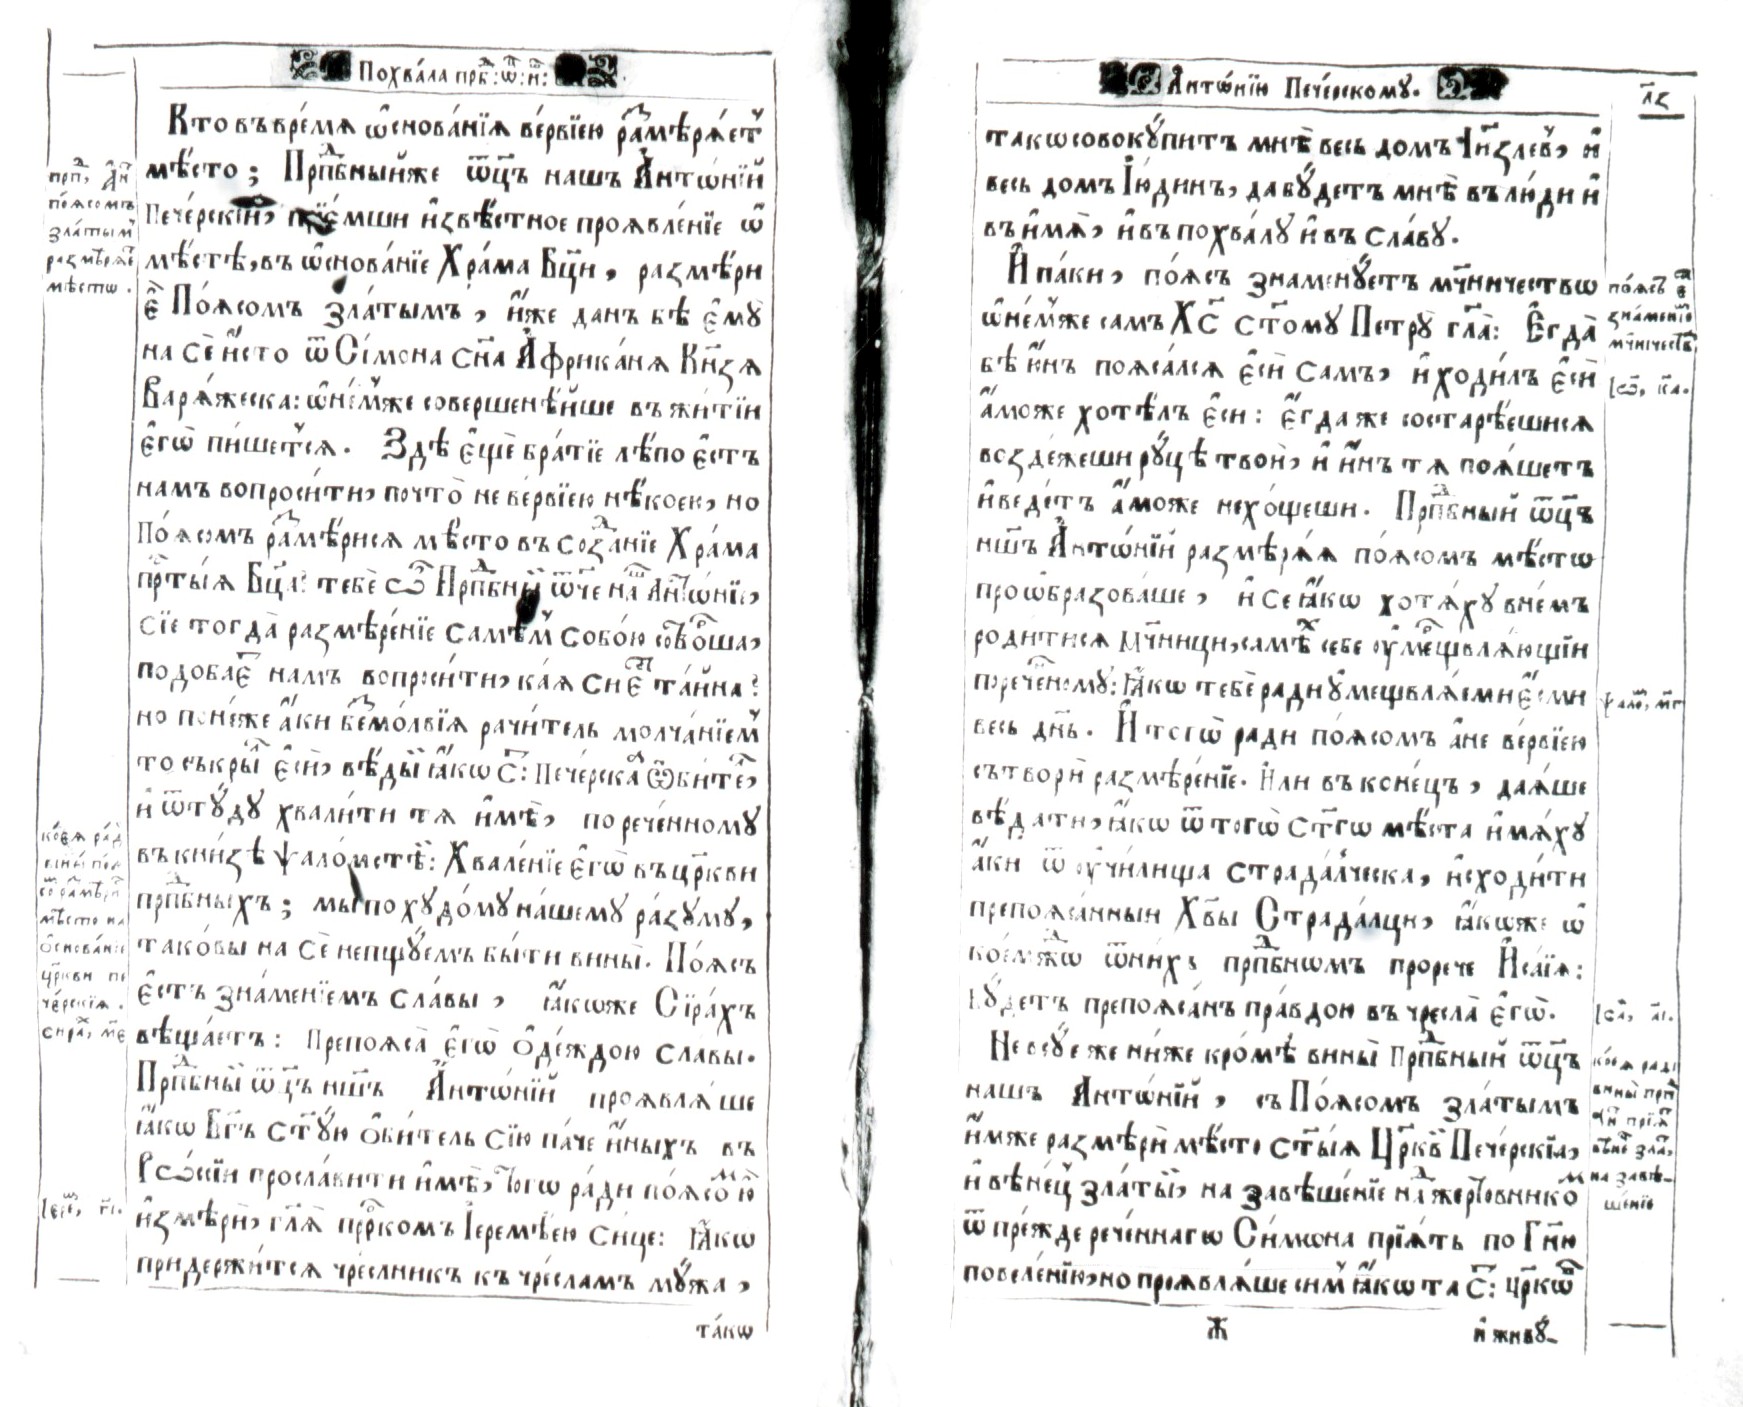 Похва́ла прпⷣб: ѿ: н҃:
Кто въ вре́мѧ ѡ҆снова́нїѧ ве́рвїею раⷥмѣрѧ́етъ
мѣ́сто; Прпⷣбныйже ѿц҃ъ нашъ А҆нтѡ́нїй
Пече́рскїй, прїе́мши и҆звѣ́стное проѧвле́нїе ѡ҆
мѣ́стѣ, въ ѡ҆снова́нїе Хра́ма Бц҃и, размѣ́ри
є҆̀ По́ѧсомъ зла́тымъ, и҆́же данъ бѣ є҆мꙋ̀
на сѐ и҆́сто ѿ Сі́мона сн҃а А҆фрика́нѧ Кн҃зѧ
Варѧ́жеска: ѡ҆не́мже соверше́нѣйше въ жи́тїи
є҆гѡ̀ пи́шетсѧ. Здѣ̀ є҆щѐ бра́тїе лѣ́по є҆́сть
намъ вопроси́ти, почто̀ не ве́рвїею нѣ́коею, но
По́ѧсомъ раⷥмѣ́рисѧ мѣ́сто въ соⷥда́нїе Хра́ма
пр҃ты́ѧ Бц҃а? тебѐ ѽ Прпⷣбный ѿче наⷲ А҆нтѡ́нїе,
сїе тогда̀ размѣре́нїе самѣ́мъ собо́ю совⷬѐша,
подобаеⷮ намъ вопроси́ти, ка́ѧ сиⷭ҇ є҆ⷭ҇ та́йна?
но поне́же а҆́ки беⷥмо́лвїѧ рачи́тель молча́нїемъ
то съкры́лъ є҆сѝ, вѣ́дый ꙗ҆́кѡ с҃: пече́рскаѧ ѡ҆би́теⷧ,
и҆ ѿтꙋ́дꙋ хвали́ти тѧ и҆́мѣ, порече́нномꙋ
въ кни́зѣ ѱало́мстѣ: Хвале́нїе є҆гѡ̀ въ цр҃кви
прпⷣбныхъ; мы по хꙋдо́мꙋ на́шемꙋ ра́зꙋмꙋ,
тако́вы на сѐ непщꙋ́емъ бы́ти вины̀. По́ѧсъ
є҆́стъ зна́менїемъ сла́вы, ꙗ҆́коже Сїра́хъ
вѣща́етъ: Препоѧ́са є҆го̀ ѻ҆де́ждою сла́вы.
Прпⷣбный ѿц҃ъ нш҃ъ А҆нтѡ́нїй проѧвлѧ́ше
ꙗ҆́кѡ Бг҃ъ ст҃ꙋ́ю ѻ҆би́тель сїю па́че и҆́ныхъ въ
Рѡ́ссїи просла́вити и҆́мѣ, тогѡ ра́ди по́ѧсоⷨ ю҆̀
и҆змѣ́рѝ, гл҃ѧ прⷪ҇ркомъ І҆еремі́ею си́це: ꙗ҆́кѡ
придержи́тсѧ чре́слникъ къ чре́сламъ мꙋ́жа,
та́кѡ
прпⷣ, А҆́н
по́ѧсомъ
зла́тыⷨ
размѣрѧ́е
мѣстѡ.
ко́еѧ ра́д
вины̀ поѧ
соⷨ раⷥмѣри
мѣ́сто на
ѻ҆снова́нїе
цр҃кви пе
че́рскїѧ.
сираⷯ, м҃є
І҆ереⷨ, г҃і.
А҆нтѡ́нїю Пече́рскомꙋ.
л҃з
такѡ совокꙋ́питъ мнѣ̀ весь домъ І҆и҃злевъ, и҆
весь домъ І҆ю́динъ, да бꙋ́детъ мнѣ̀ въ лю́ди и҆
въ и҆́мѧ, и҆ въ похва́лꙋ и҆ въ сла́вꙋ.
И҆ па́ки, по́ѧсъ знаменꙋ́етъ мч҃ничество
ѡ҆не́мже самъ Хс҃ ст҃омꙋ Петрꙋ̀ гл҃а: Є҆гда̀
бѣ ю҆́нъ поѧса́лсѧ є҆сѝ самъ, и҆ ходи́лъ є҆сѝ
а҆́може хотѣ́лъ є҆си: є҆гда́же состарѣ́ешисѧ
возде́жеши рꙋ́цѣ твоѝ, и҆ и҆́нъ тѧ поѧ́шетъ
и҆ веде́тъ а҆́може нехо́щеши. Прпⷣбный ѿц҃ъ
нш҃ъ А҆нтѡ́нїй размѣрѧ́ѧ по́ѧсомъ мѣ́сто
проѡ҆бразова́ше, и҆ се ꙗ҆́кѡ хотѧ́хꙋ в не́мъ
роди́тисѧ мч҃ницы, самѣⷯ себе ᲂу҆мерщвлѧ́ющїи
порече́нномꙋ: ꙗ҆́кѡ тебѐ ради ᲂу҆мерщвлѧ́еми є҆смы
весь дн҃ь. И҆ тогѡ̀ ради по́ѧсомъ а҆ не ве́рвїею
сътвори́ размѣре́нїе. И҆ли въ коне́цъ, даѧ́ше
вѣ́дати, ꙗ҆́кѡ ѿ тогѡ̀ ст҃гѡ мѣ́ста и҆мѧ́хꙋ
а҆́ки ѿ ᲂу҆чи́лища страда́лческа, и҆сходи́ти
препоѧ́санныи Хв҃ы Страда́лцы, ꙗ҆́коже ѡ҆
ко́емждѡ ѿ ни́хъ прпⷣбнѡмъ прорече И҆са́їѧ:
Бꙋ́детъ препоѧ́санъ пра́вдою въ чресла̀ є҆гѡ̀.
Не всꙋ́е же ни́же кро́мѣ вины̀ Прпⷣбный ѿц҃ъ
нашъ А҆нтѡ́нїй, съ По́ѧсомъ зла́тымъ
и҆́мже размѣрѝ мѣ́сто ст҃ы́ѧ Цр҃квѐ Пече́рскїѧ,
и҆ вѣне́ц зла́тый, на завѣше́нїе наⷣ же́ртовникоⷨ
ѿ пре́жде рече́ннагѡ Си́мѡна прїѧ́тъ по Гн҃ю
повеле́нїю, но проѧвлѧ́ше симъ ꙗ҆́кѡ та с҃: цр҃кѡⷡ
Ѫ
и҆ живꙋ́-
по́ѧсъ є҆ⷭ҇
зна́менїе
мч҃ничестⷡ
І҆ѡ҃, к҃а.
ѱалоⷨ, м҃г
І҆са҃, а҃і.
ко́еѧ ради
вины̀ прпⷣ
А҆́н прїѧⷮ
вѣне́ зла,
на завѣ-
ше́нїе